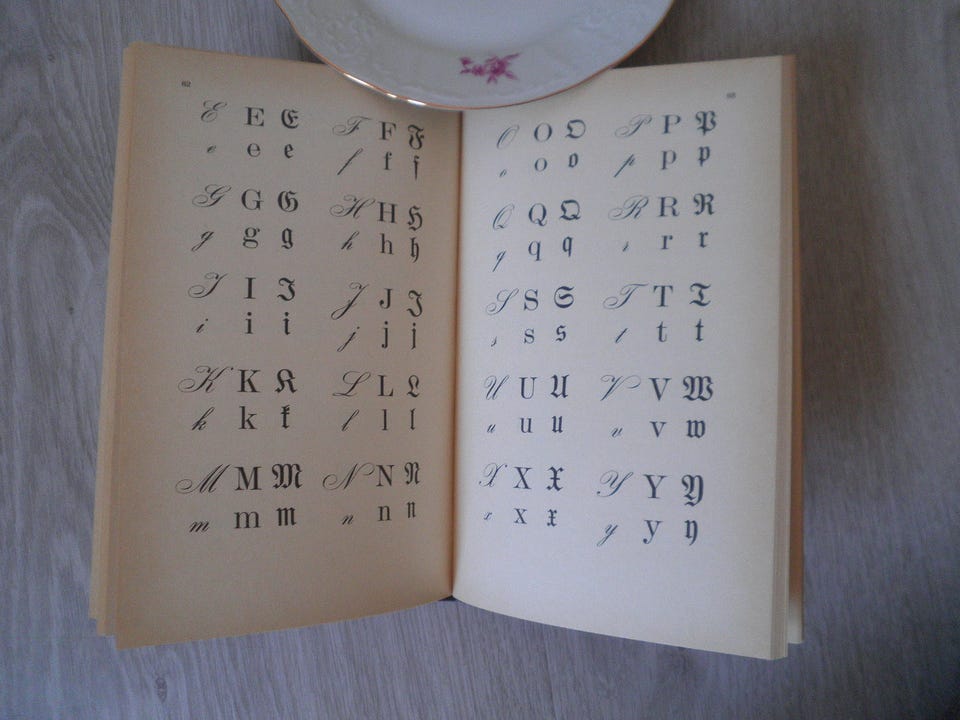 62
E E E F F F
e e e f f f
G G G H H H
g g g h h h
I I I J J J
i i i j j j
K K K L L L
k k k l l l
M M M N N N
m m m n n n
63
O O O P P P
o o o p p p
Q Q Q R R R
q q q r r r
S S S T T T
s s s t t t
U U U V V W
u u u v v w
X X X Y Y Y
x x x y y y